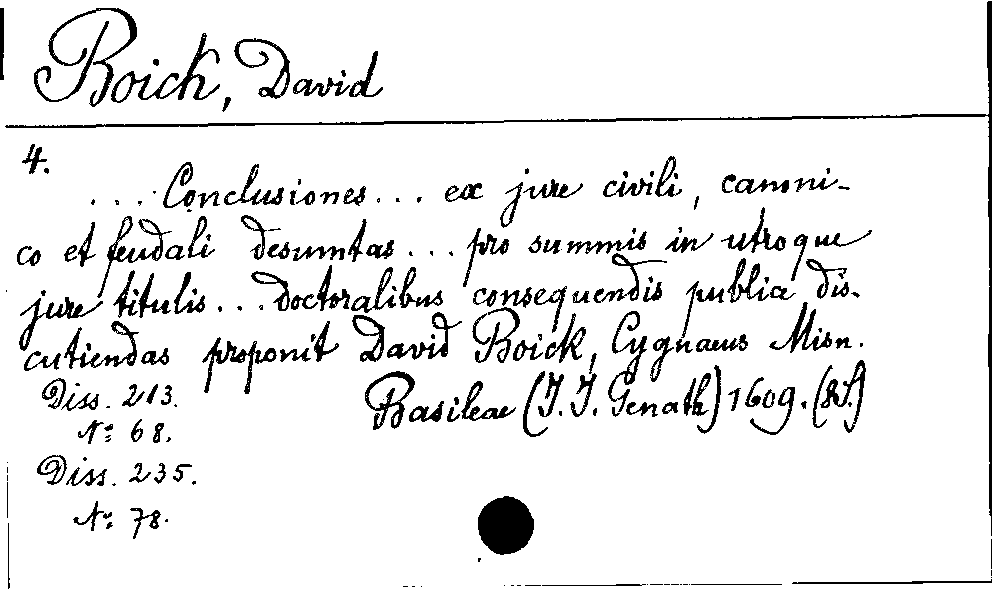 Boick, David
4.
... Conclusiones... ex jure civili, canoni-
co et feudali desumtas... pro summis in utroque
jure titulis... doctoralibus consequendis publica dis-
cutiendas proponit David Boick, Cygnaeus Misn.
Diss. 213. Basileae (J. J. Genath) 1609. (8 S.)
No: 68.
Diss. 235.
No: 78.